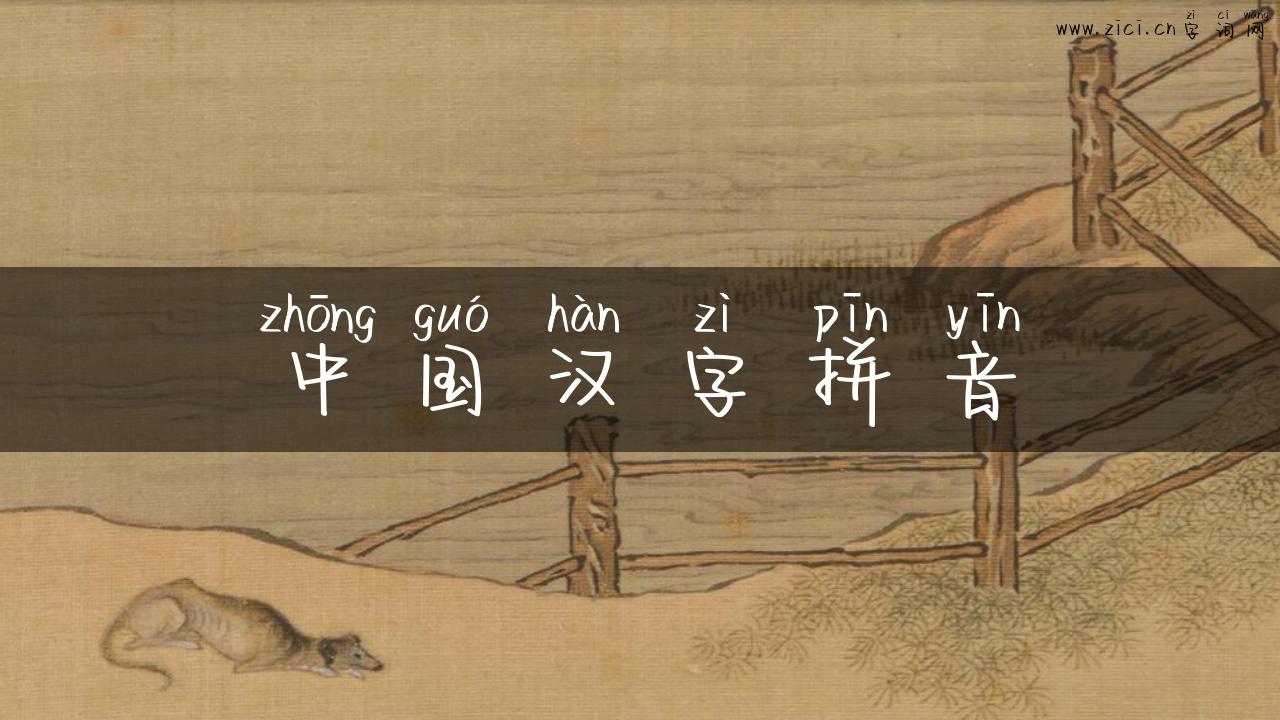 zì cí wǎng
www.zici.cn 字词网
zhōng guó hàn zì pīn yīn
中国汉字拼音